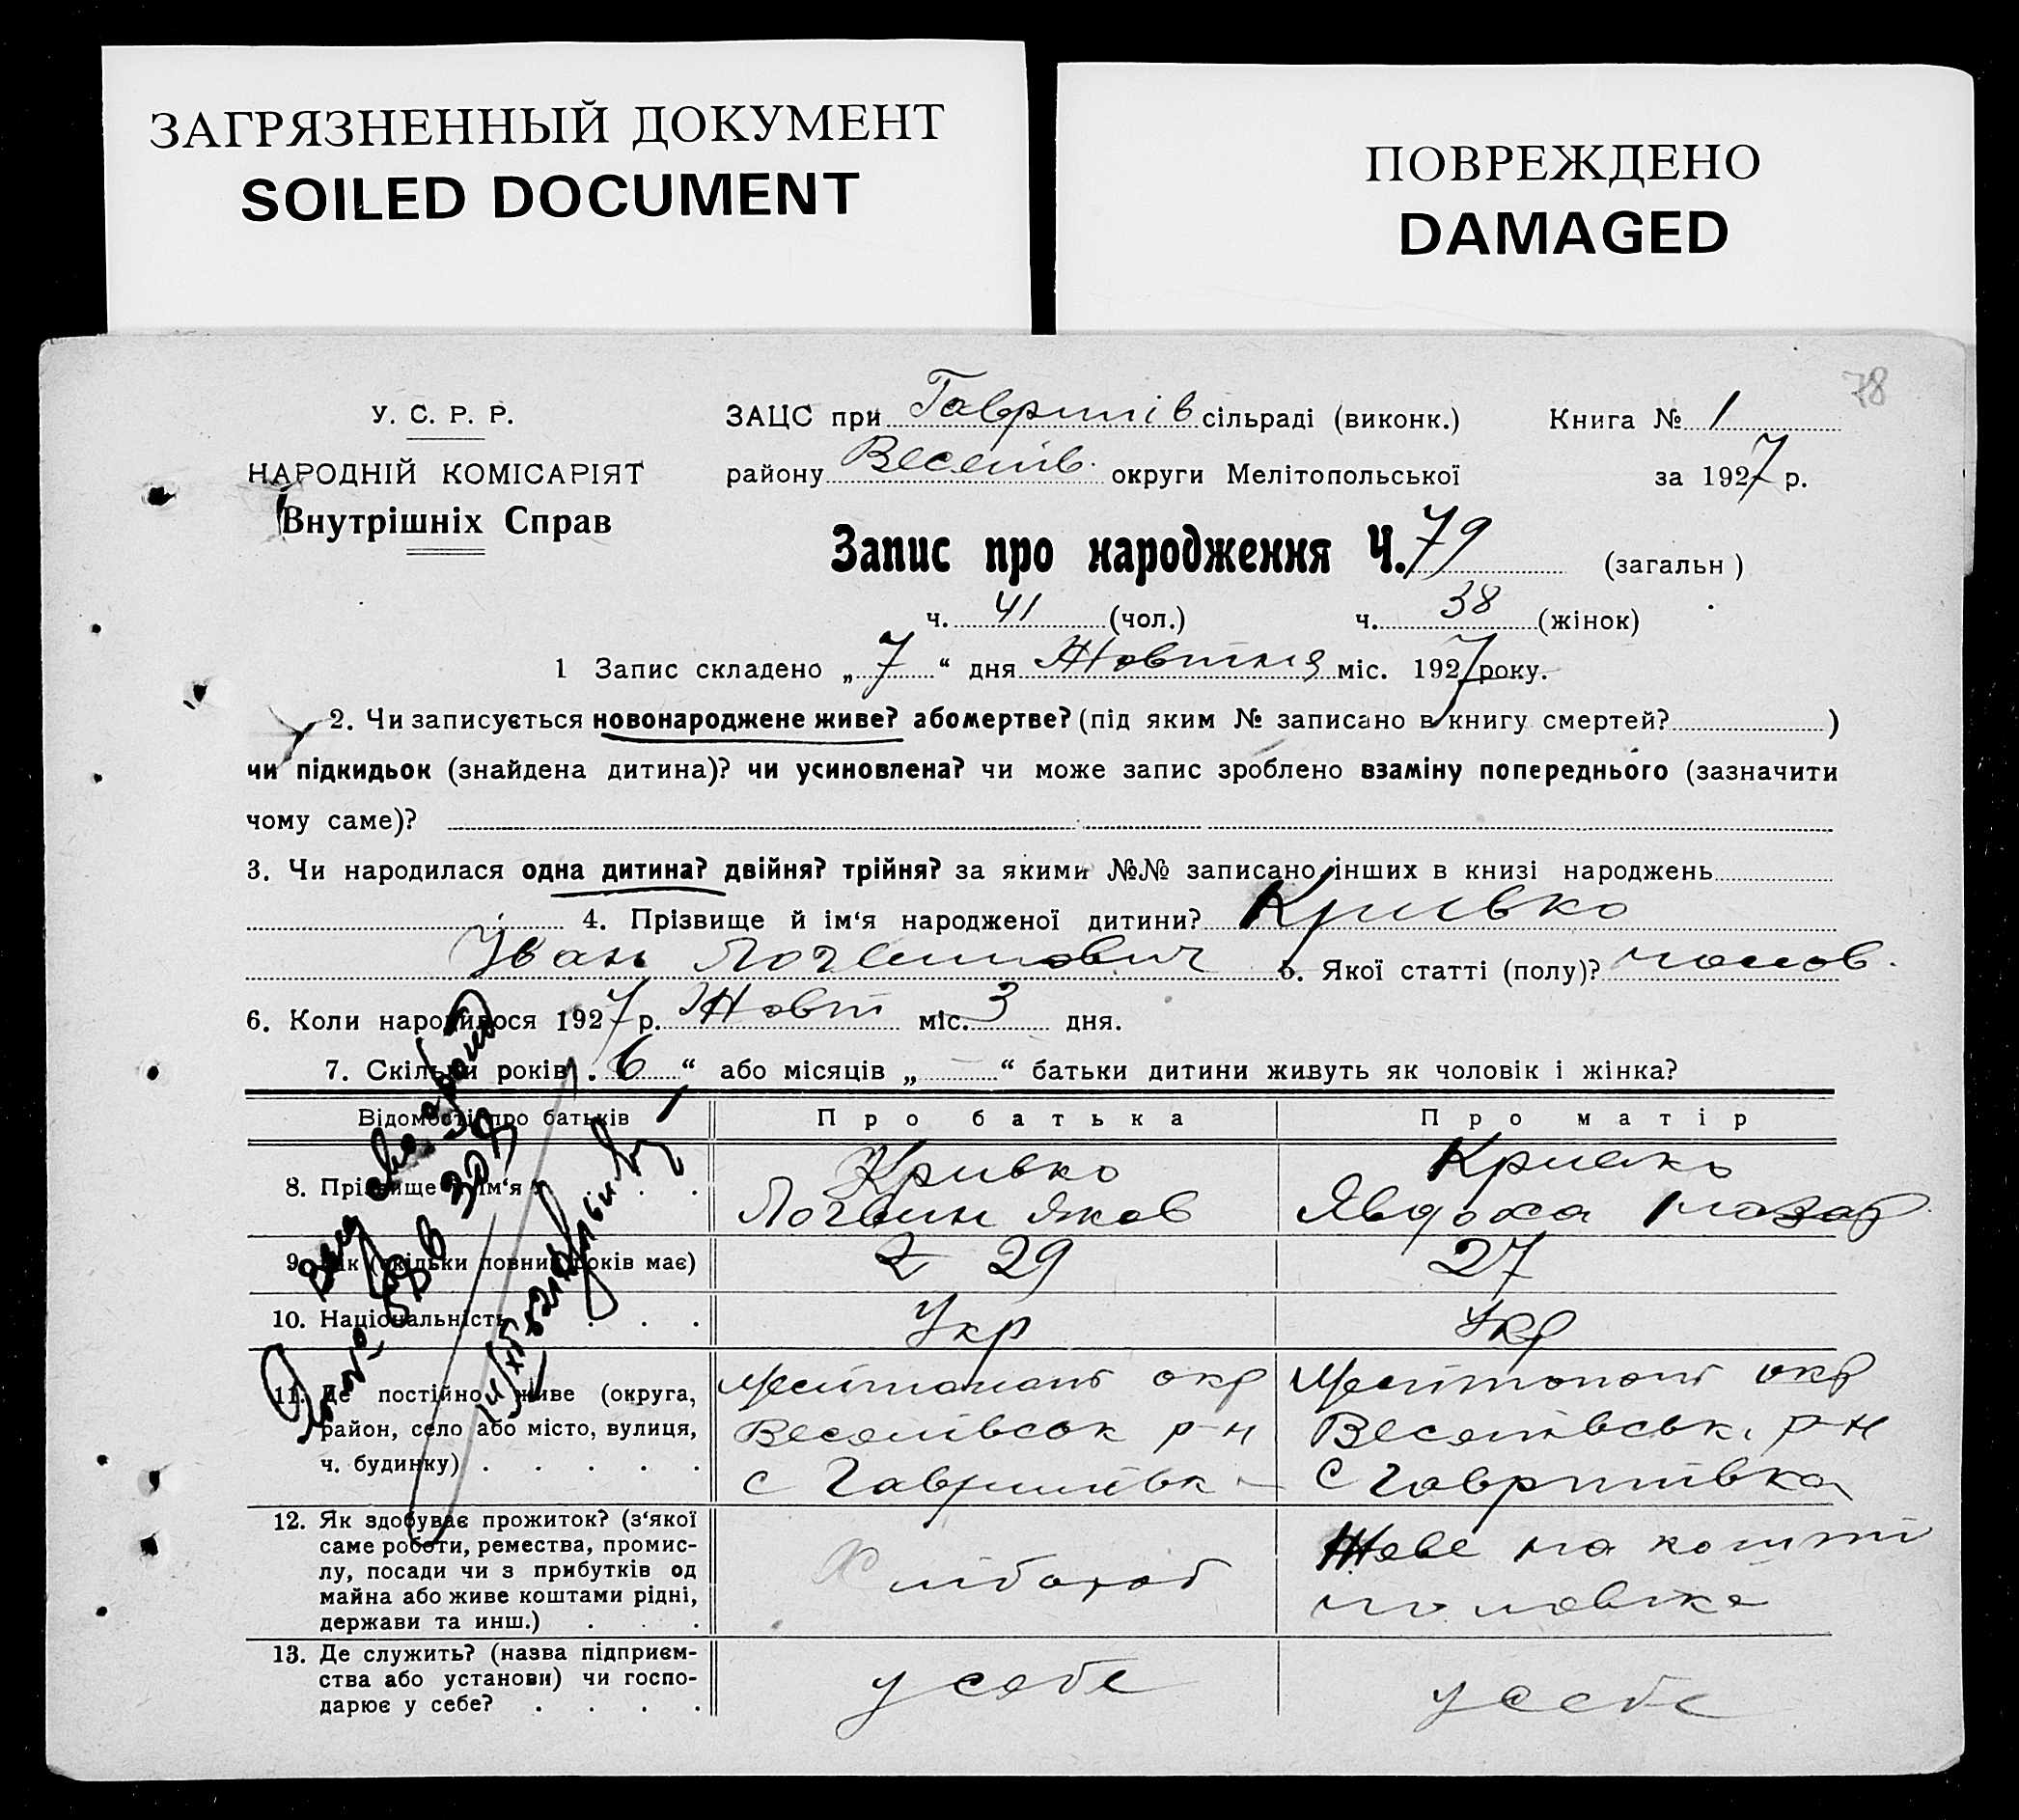 ЗАГРЯЗНЕННЫЙ ДОКУМЕНТ
SOILED DOCUMENT
ПОВРЕЖДЕНО
DAMAGED
78
У. С. Р. Р.
НАРОДНІЙ КОМІСАРІЯТ
Внутрішніх Справ
ЗАЦС при Гаврилів сільраді (виконк.) Книга № 1
району Веселів. округи Мелітопольської за 1927 р.
Запис про народження Ч. 79 (загальн)
ч. 41 (чол.) ч. 38 (жінок)
1 Запис складено „7“ дня Жовтня міс. 1927 року.
2. Чи записується новонароджене живе? або мертве? (під яким № записано в книгу смертей? )
чи підкидьок (знайдена дитина)? чи усиновлена? чи може запис зроблено взаміну попереднього (зазначити
чому саме)?
3. Чи народилася одна дитина? двійня? трійня? за якими №№ записано інших в книзі народжень
4. Прізвище й ім‘я народженої дитини? Кривко
Іван Логвинович 5. Якої статті (полу)? чолов.
6. Коли народилося 1927 р. Жовт міс. 3 дня.
7. Скільки років . 6 “ або місяців „ “ батьки дитини живуть як чоловік і жінка?
Відомості про батьків Про батька Про матір
8. Прізвище й ім‘я . . . Кривко Кривко
Логвин Яков Явдоха Назар
9. Вік (скільки повних років має) 2 29 27
10. Національність . . . Укр Укр
11. Де постійно живе (округа, Мелітопольс окр Мелітопольс окр
район, село або місто, вулиця, Веселівськ р-н Веселівськ. р-н
ч. будинку) . . . . . с Гаврилівк с Гаврилівка
12. Як здобуває прожиток? (з‘якої
саме роботи, ремества, промис-
лу, посади чи з прибутків од
майна або живе коштами рідні,
держави та инш.) . . .
Хлібороб
Живе на кошти
чоловіка
13. Де служить? (назва підприєм-
ства або установи) чи госпо-
дарює у себе? . . . .
у себе у себе